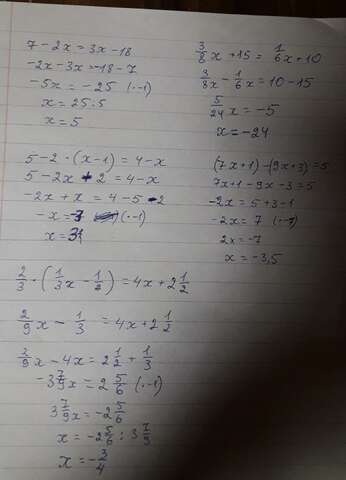 7 - 2x = 3x - 18
-2x - 3x = -18 - 7
-5x = -25 (·-1)
x = 25:5
x = 5
3/8 x + 15 = 1/6 x + 10
3/8 x - 1/6 x = 10 - 15
5/24 x = -5
x = -24
5 - 2 · (x - 1) = 4 - x
5 - 2x + 2 = 4 - x
-2x + x = 4 - 5 - 2
-x = -3 (·-1)
x = 3
(7x + 1) - (9x + 3) = 5
7x + 1 - 9x - 3 = 5
-2x = 5 + 3 - 1
-2x = 7 (·-1)
2x = -7
x = -3,5
2/3 · (1/3 x - 1/2) = 4x + 2 1/2
2/9 x - 1/3 = 4x + 2 1/2
2/9 x - 4x = 2 1/2 + 1/3
-3 7/9 x = 2 5/6 (·-1)
3 7/9 x = -2 5/6
x = -2 5/6 : 3 7/9
x = -3/4